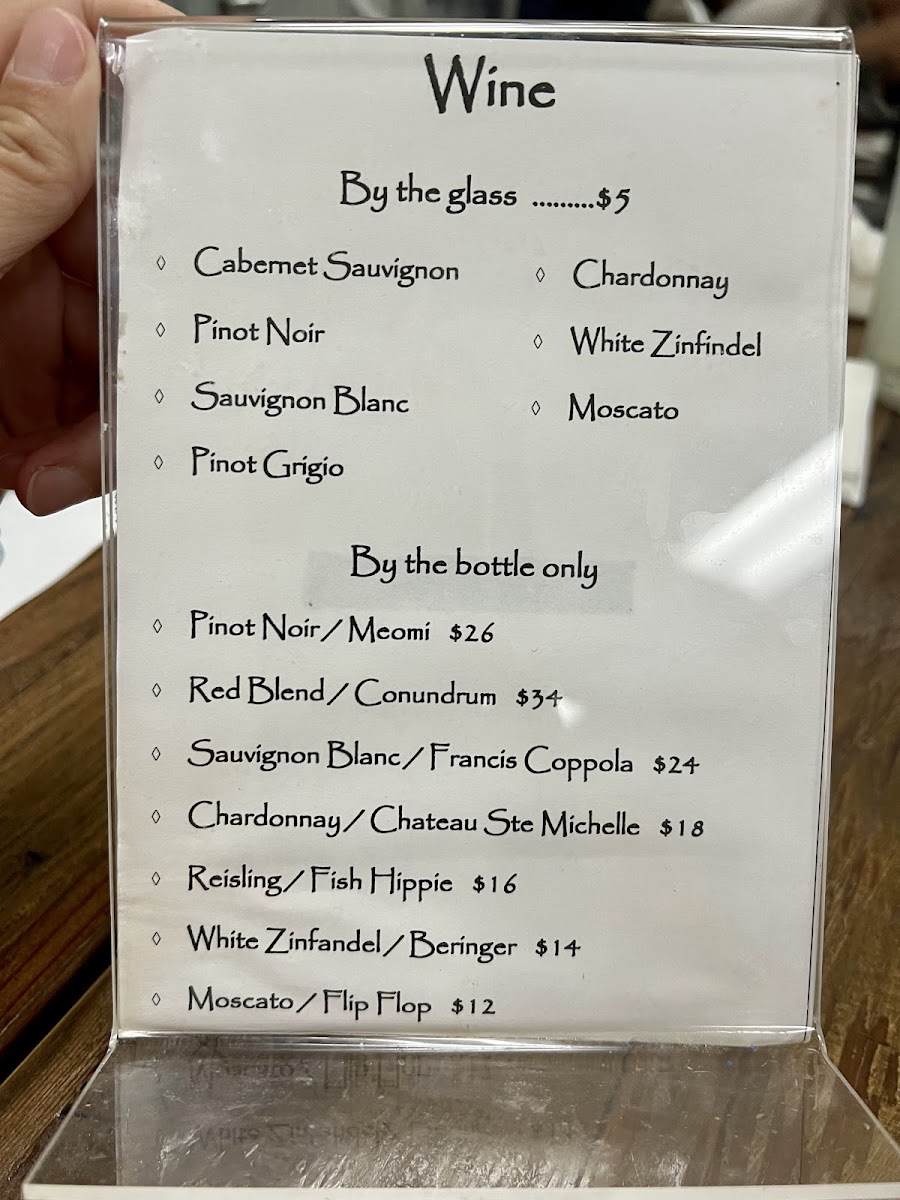 Wine
By the glass .........$5
◊ Cabernet Sauvignon
◊ Pinot Noir
◊ Sauvignon Blanc
◊ Pinot Grigio
◊ Chardonnay
◊ White Zinfindel
◊ Moscato
By the bottle only
◊ Pinot Noir/Meomi $26
◊ Red Blend/Conundrum $34
◊ Sauvignon Blanc/Francis Coppola $24
◊ Chardonnay/Chateau Ste Michelle $18
◊ Reisling/Fish Hippie $16
◊ White Zinfandel/Beringer $14
◊ Moscato/Flip Flop $12